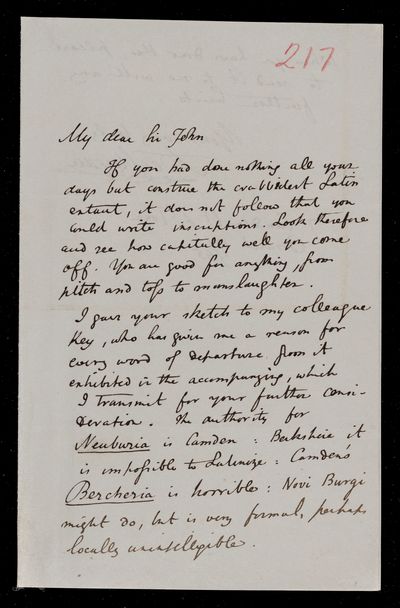 217
My dear Sir John
If you had done nothing all your
days but construe the crabbidest Latin
extant, it does not follow that you
could write inscriptions. Look therefore
and see how capitally well you come
off. You are good for anything, from
pitch and toss to manslaughter.
I gave your sketch to my colleague
Key, who has given me a reason for
every word of departure from it
exhibited in the accompanying, which
I transmit for your further consi-
deration. The authority for
Neuburia is Camden: Berkshire it
is impossible to Latinize: Camden's
Bercheria is horrible: Novi Burgi
might do, but is very formal, perhaps
locally unintelligible.